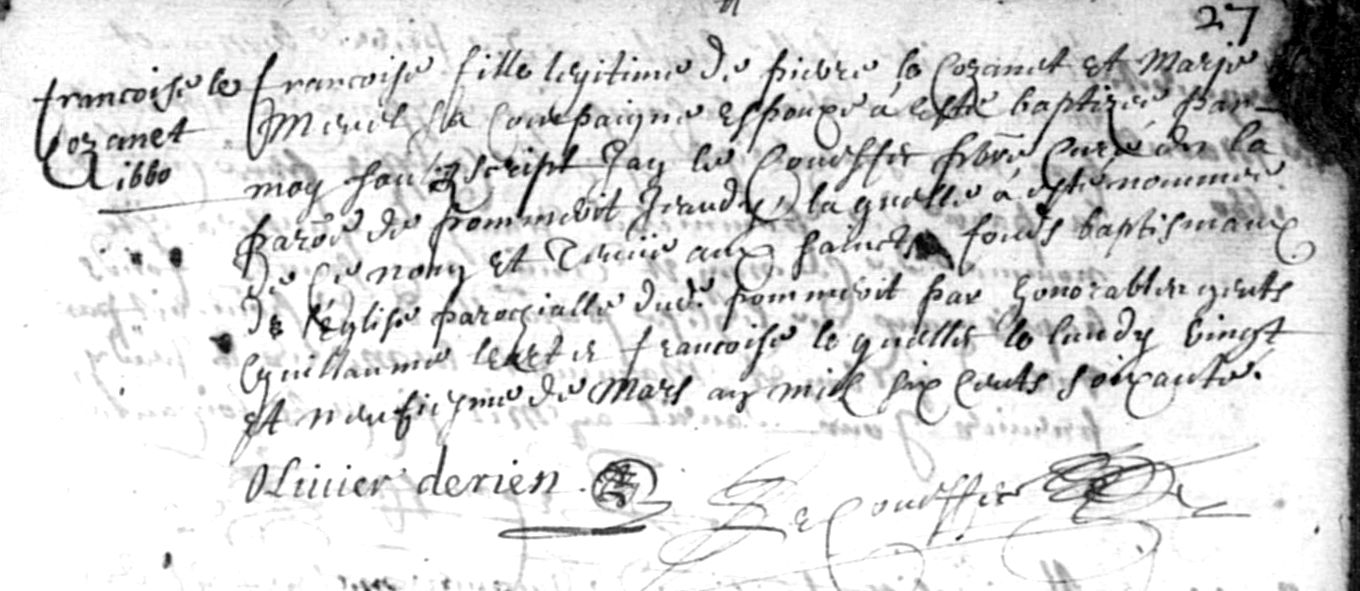 27
francoise le
Cozanet
1660
francoise fille legitime de pierre le Cozanet et Marie
sa Compaigne espouze á esté baptizée par
moy soubzscript Jan le Couffic pbre Curé en la
paroe de pommerit Jeaudy, laquelle á esté nommée
de ce nom et tenüe aux saincts fonds baptismaux
de l'église parochialle dud. pommerit par honorables gents
Guillaume et francoise le quellec le lundy vingt
et neufiesme de Mars an mil six cents soixante.
Olivier derien.
Le Couffic